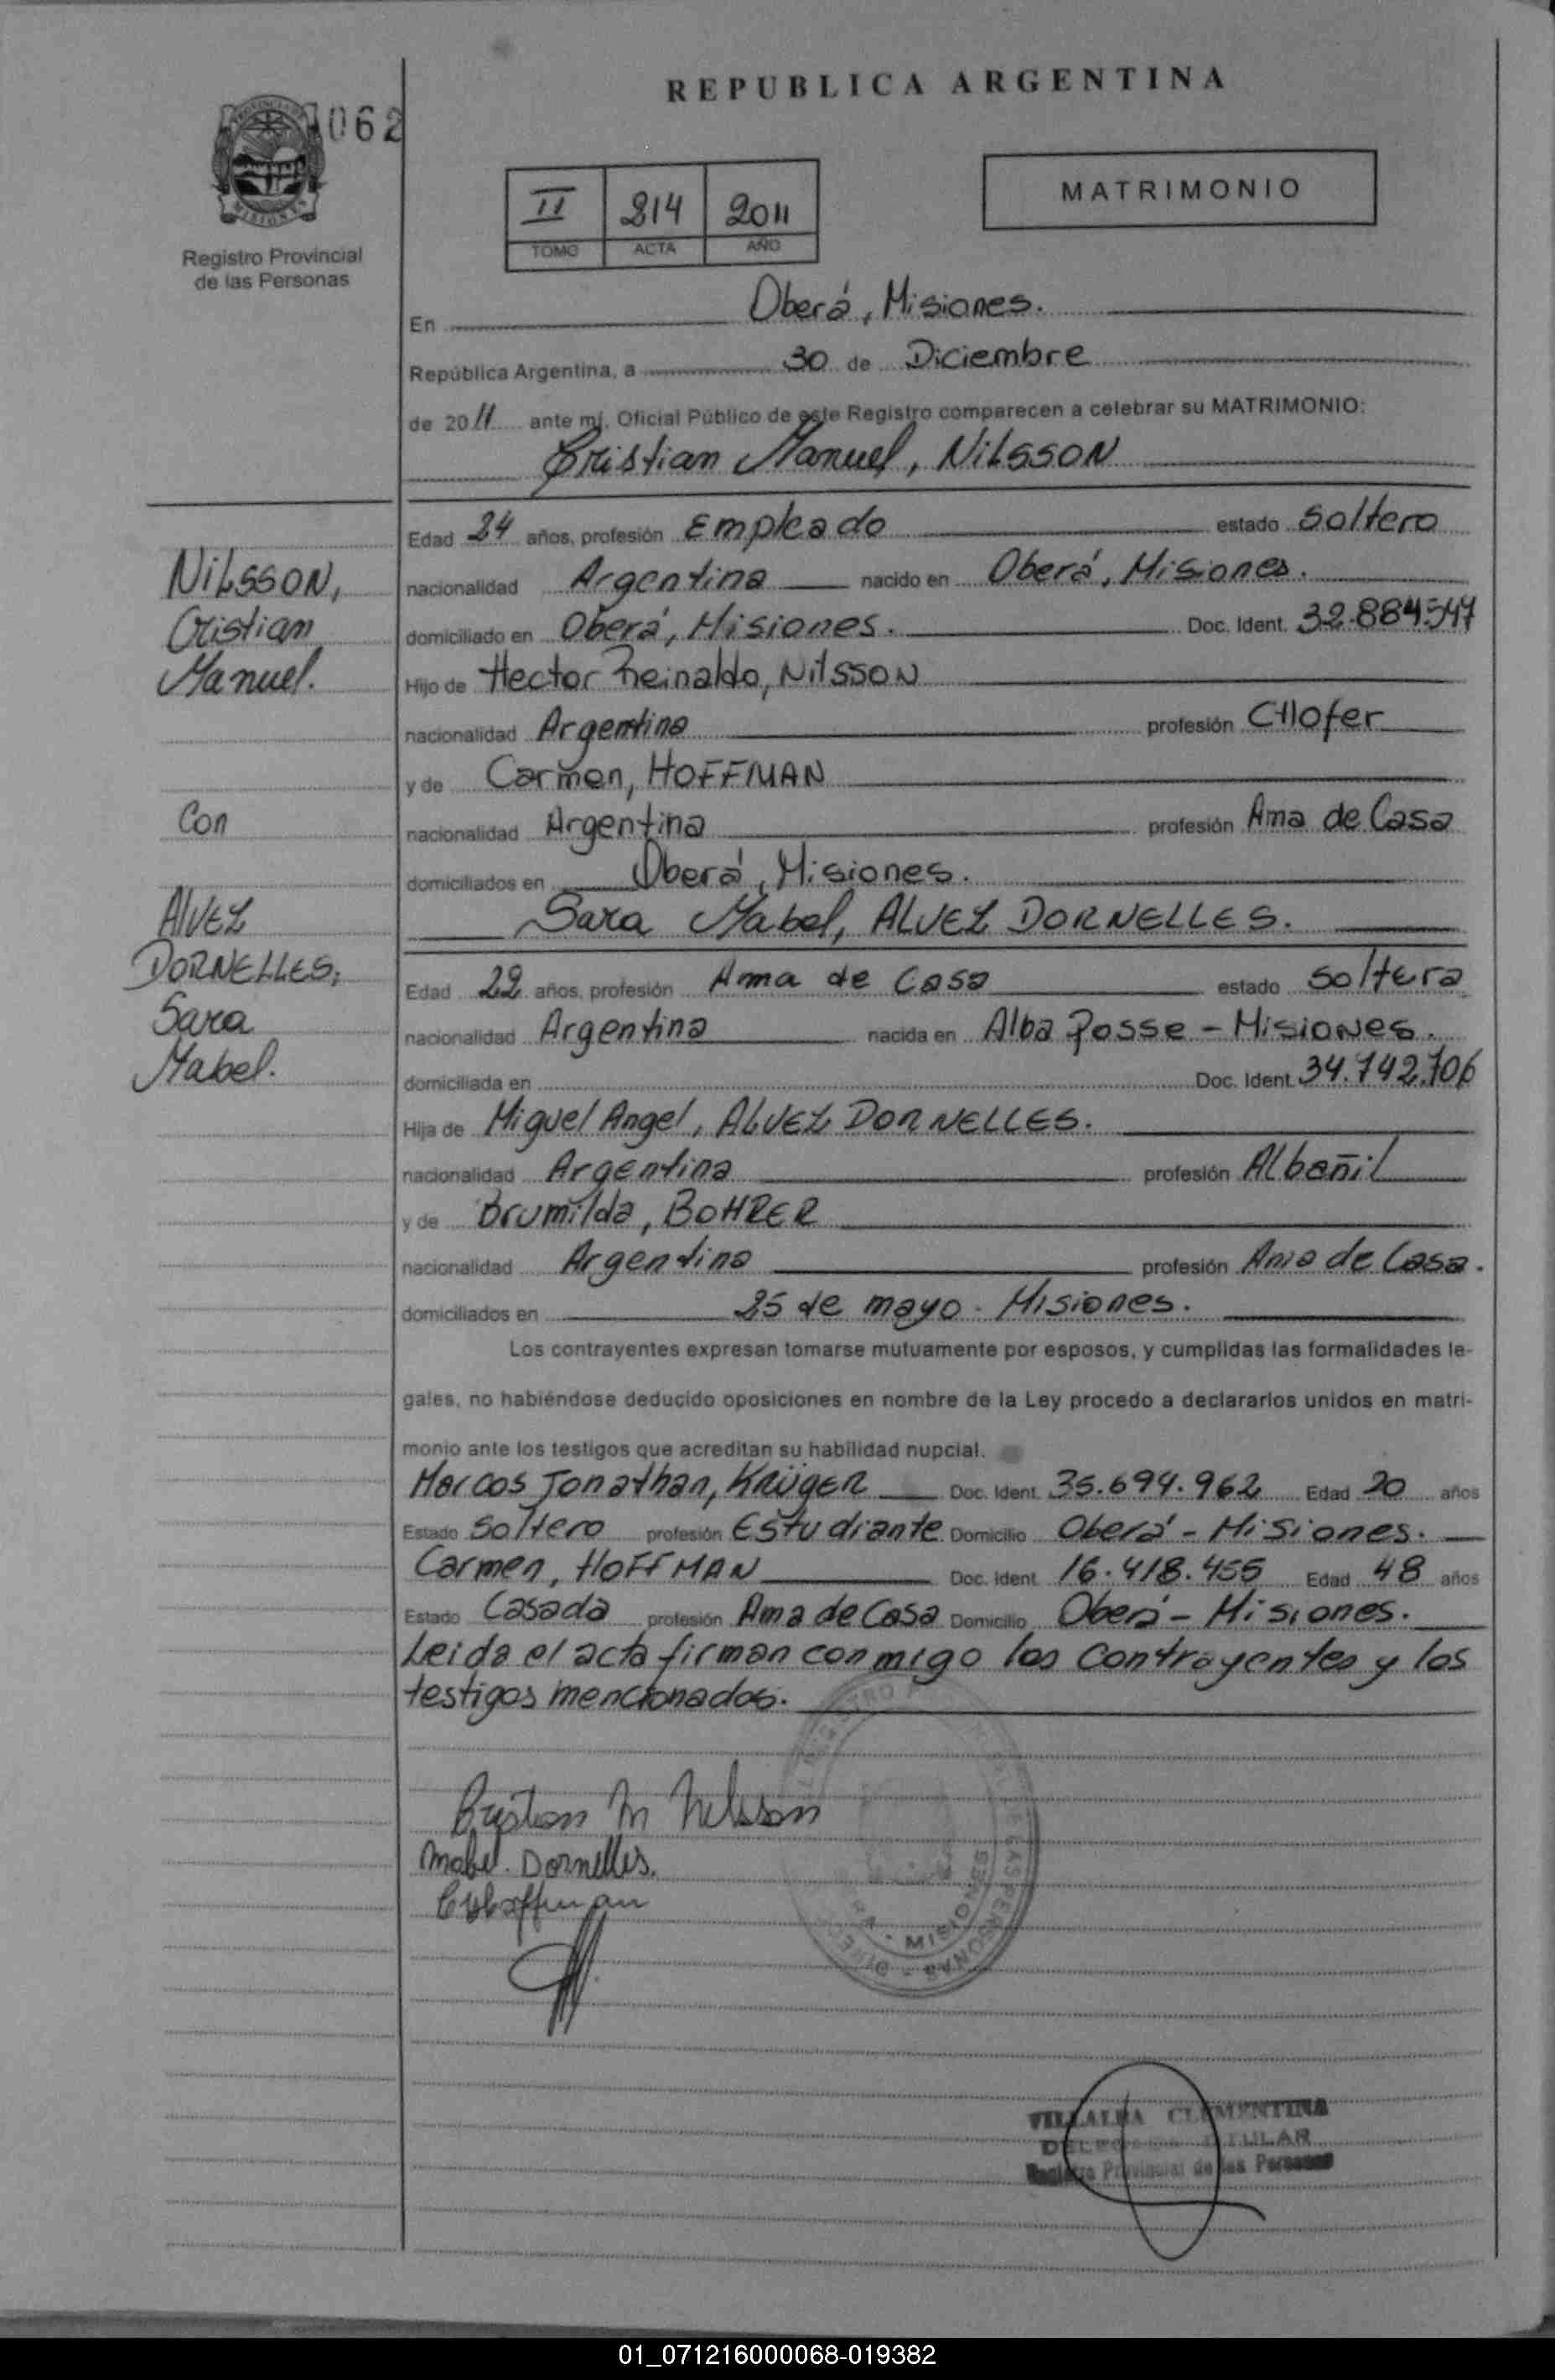 REPUBLICA ARGENTINA
062
PROVINCIA DE
MISIONES
Registro Provincial
de las Personas
II 214 2011
TOMO ACTA AÑO
MATRIMONIO
En Oberá, Misiones.
República Argentina, a 30 de Diciembre
de 2011 ante mí, Oficial Público de este Registro comparecen a celebrar su MATRIMONIO:
Cristian Manuel, NILSSON
Edad 24 años, profesión Empleado estado Soltero
nacionalidad Argentina nacido en Oberá, Misiones.
domiciliado en Oberá, Misiones. Doc. Ident. 32.884.547
Hijo de Hector Reinaldo, NilSSON
nacionalidad Argentina profesión CHofer
y de Carmen, HOFFMAN
nacionalidad Argentina profesión Ama de Casa
domiciliados en Oberá, Misiones.
Sara Mabel, ALVEZ DORNELLES.
Edad 22 años, profesión Ama de Casa estado Soltera
nacionalidad Argentina nacida en Alba Posse - Misiones.
domiciliada en Doc. Ident. 34.742.706
Hija de Miguel Angel, ALVEZ DORNELLES.
nacionalidad Argentina profesión Albañil
y de Brumilda, BOHRER
nacionalidad Argentina profesión Ama de Casa.
domiciliados en 25 de mayo - Misiones.
Los contrayentes expresan tomarse mutuamente por esposos, y cumplidas las formalidades le-
gales, no habiéndose deducido oposiciones en nombre de la Ley procedo a declararlos unidos en matri-
monio ante los testigos que acreditan su habilidad nupcial.
Marcos Jonathan, KRÜGER Doc. Ident. 35.694.962 Edad 20 años
Estado Soltero profesión Estudiante Domicilio Oberá - Misiones.
Carmen, HOFFMAN Doc. Ident. 16.418.455 Edad 48 años
Estado Casada profesión Ama de Casa Domicilio Oberá - Misiones.
Leida el acta firman conmigo los Contrayentes y los
testigos mencionados.
NILSSON,
Cristian
Manuel.
Con
ALVEZ
DORNELLES,
Sara
Mabel.
Cristian M Nilsson
Mabel. Dornelles.
C Hoffman
MISIONES
VILLALBA CLEMENTINA
TITULAR
Registro Provincial de las Personas
01_071216000068-019382